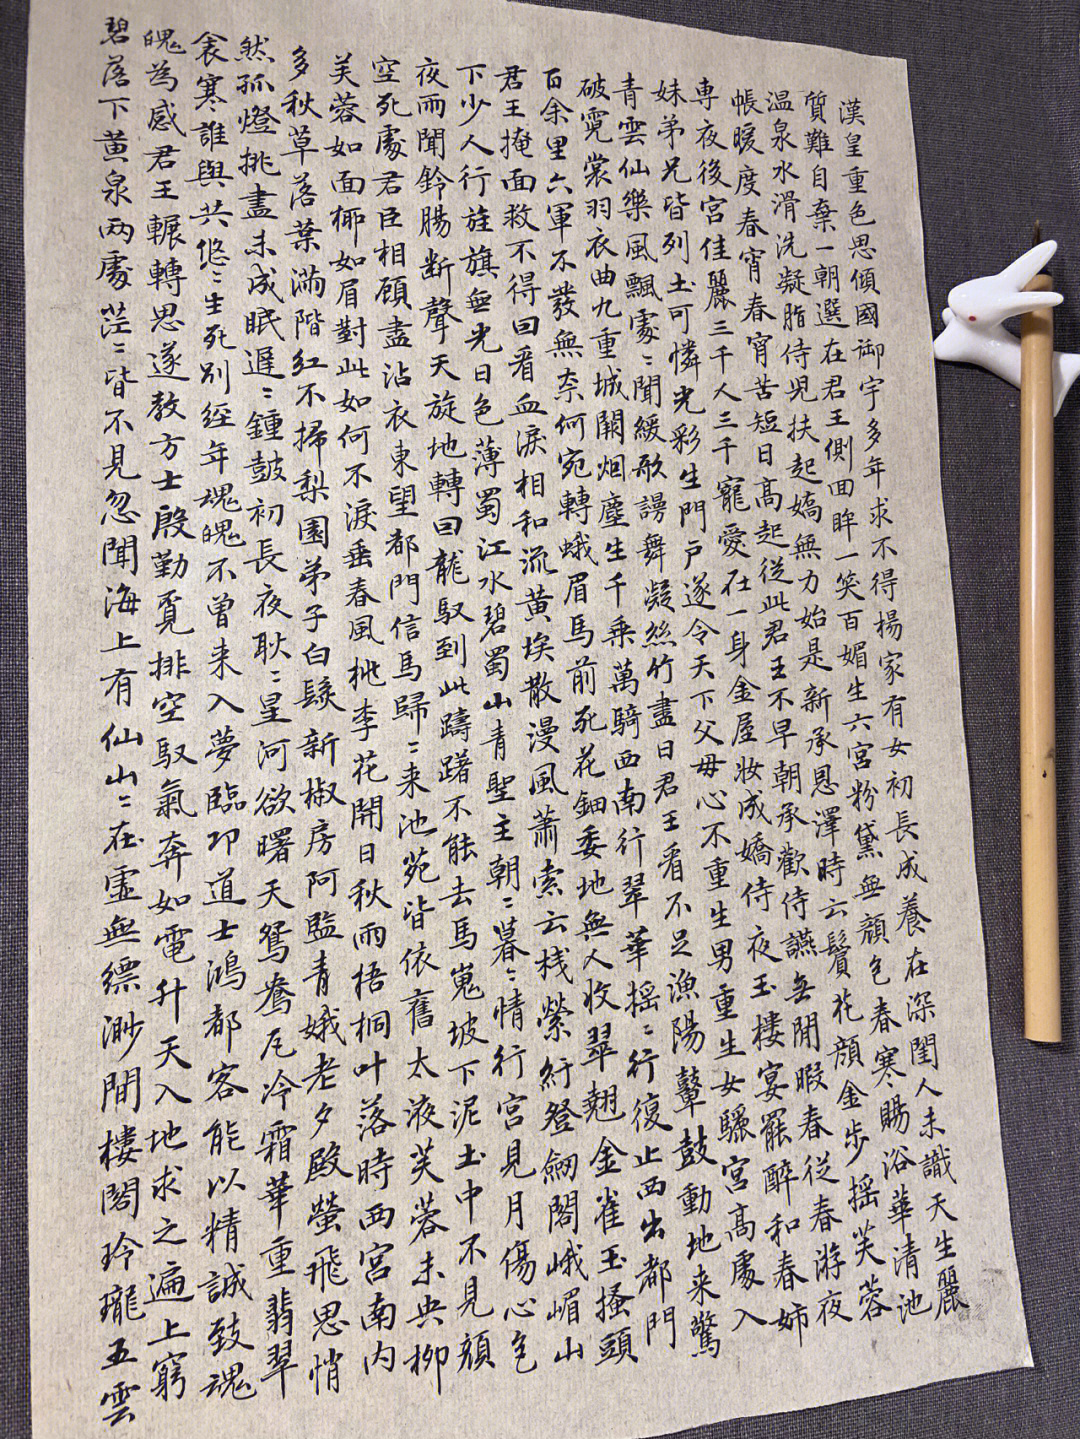 漢皇重色思傾國御宇多年求不得楊家有女初長成養在深閨人未識天生麗
質難自棄一朝選在君王側回眸一笑百媚生六宮粉黛無顏色春寒賜浴華清池
温泉水滑洗凝脂侍児扶起嬌無力始是新承恩澤時云鬢花顔金步摇芙蓉
帳暖度春宵春宵苦短日高起従此君王不早朝承歡侍讌無閒暇春従春游夜
專夜後宮佳麗三千人三千寵愛在一身金屋妝成嬌侍夜玉樓宴罷醉和春姊
妹弟兄皆列土可憐光彩生門戸遂令天下父母心不重生男重生女驪宮高處入
青雲仙樂風飄處〻聞緩歌謾舞凝絲竹盡日君王看不足漁陽鼙鼓動地来驚
破霓裳羽衣曲九重城闕烟塵生千乗萬騎西南行翠華摇〻行復止西出都門
百余里六軍不發無奈何宛轉蛾眉馬前死花鈿委地無人收翠翹金雀玉搔頭
君王掩面救不得回看血淚相和流黄埃散漫風蕭索云栈縈紆登劒閣峨嵋山
下少人行旌旗無光日色薄蜀江水碧蜀山青聖主朝〻暮〻情行宮見月傷心色
夜雨聞鈴腸断聲天旋地轉回龍馭到此躊躇不能去馬嵬坡下泥土中不見顔
空死處君臣相顧盡沾衣東望都門信馬歸〻来池苑皆依舊太液芙蓉未央柳
芙蓉如面柳如眉對此如何不淚垂春風桃李花開日秋雨梧桐叶落時西宮南内
多秋草落葉滿階紅不掃梨園弟子白髮新椒房阿監青娥老夕殿螢飛思悄
然孤燈挑盡未成眠遲〻鍾鼓初長夜耿〻星河欲曙天鴛鴦瓦冷霜華重翡翠
衾寒誰與共悠〻生死別經年魂魄不曾来入夢臨邛道士鴻都客能以精誠致魂
魄為感君王輾轉思遂教方士殷勤覓排空馭氣奔如電升天入地求之遍上窮
碧落下黄泉两處茫〻皆不見忽聞海上有仙山〻在虚無縹渺間樓閣玲瓏五雲